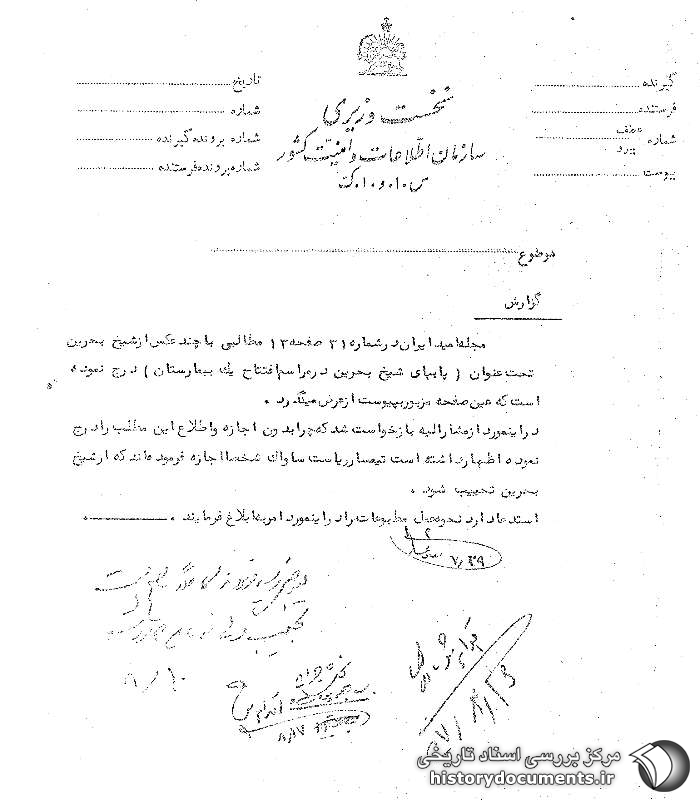 گیرنده
فرستنده
شماره عطف پیرو
پیوست
نخست وزیری
سازمان اطلاعات و امنیت کشور
س.ا.و.ا.ک
تاریخ
شماره
شماره پرونده گیرنده
شماره پرونده فرستنده
موضوع
گزارش
مجله امید ایران در شماره ۳۱ صفحه ۱۲ مطالبی با چند عکس از شیخ بحرین
تحت عنوان ( پابپای شیخ بحرین در مراسم افتتاح یك بیمارستان ) درج نموده
است که عین صفحه مزبور بپیوست از عرض میگذرد .
در اینمورد از مشارالیه بازخواست شد که چرا بدون اجازه و اطلاع این مطلب را درج
نموده اظهار داشته است تیمسار ریاست ساواك شخصا اجازه فرموده اند که از شیخ
بحرین تحبیب شود .
استدعا دارد نحوه عمل مطبوعات را در اینمورد امر به ابلاغ فرمایند .
۷/۲۹
۸/۱۰
اقدام
۸/۱۷
مرکز بررسی اسناد تاریخی
historydocuments.ir